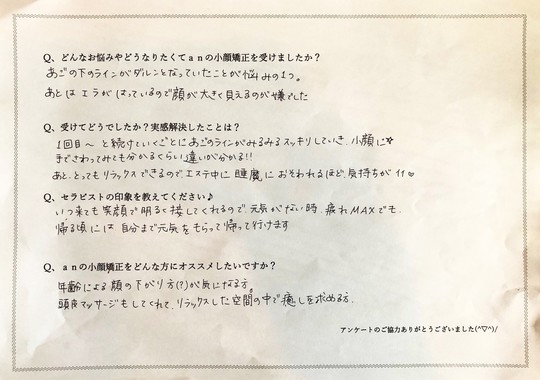 Q、どんなお悩みやどうなりたくてａｎの小顔矯正を受けましたか？
あごの下のラインがダルンとなっていたことが悩みの1つ。
あとは エラが はっているので顔が大きく見えるのが嫌でした
Q、受けてどうでしたか？実感解決したことは？
1回目〜 と続けていくごとにあごのラインがみるみるスッキリしていき、小顔に☆
手でさわってみても分かるくらい違いが分かる!!
あと、とってもリラックスできるので、エステ中に 睡魔に おそわれるほど、気持ちが イイ♡
Q、セラピストの印象を教えてください♪
いつ来ても 笑顔で明るく接してくれるので、元気がない時、疲れMAXでも、
帰る頃には 自分まで元気をもらって帰って行けます
Q、ａｎの小顔矯正をどんな方にオススメしたいですか？
年齢による 顔の下がり方(?)が気になる方。
頭皮マッサージもしてくれて、リラックスした空間の中で癒しを求める方.
アンケートのご協力ありがとうございました(^▽^)/